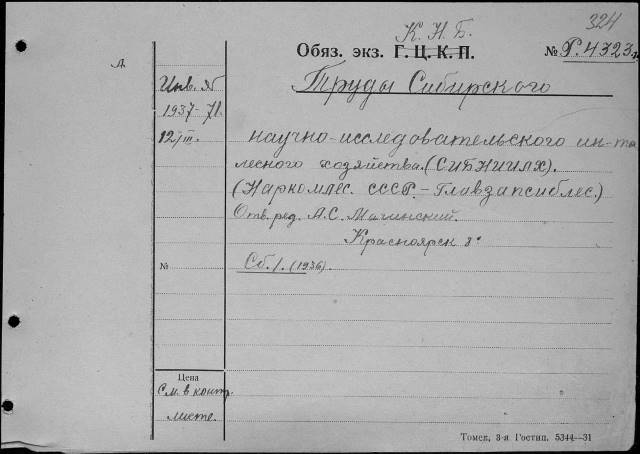 324
К. Н. Б.
Обяз. экз. Г. Ц. К. П.
№ Г.4323
Л.
Инв. Яб
1937-71.
12/III.
Труды Сибирского
научно-исследовательского ин-та
лесного хозяйства. (СИБНИИЛХ).
(Наркомлес. СССР. - Главзапсиблес.)
Отв. ред. А.С. Магинский.
Красноярск 8°
№
Сб. 1. (1936).
Цена
См. в контр.
листе.
Томск, 3-я Гостип. 5344—31